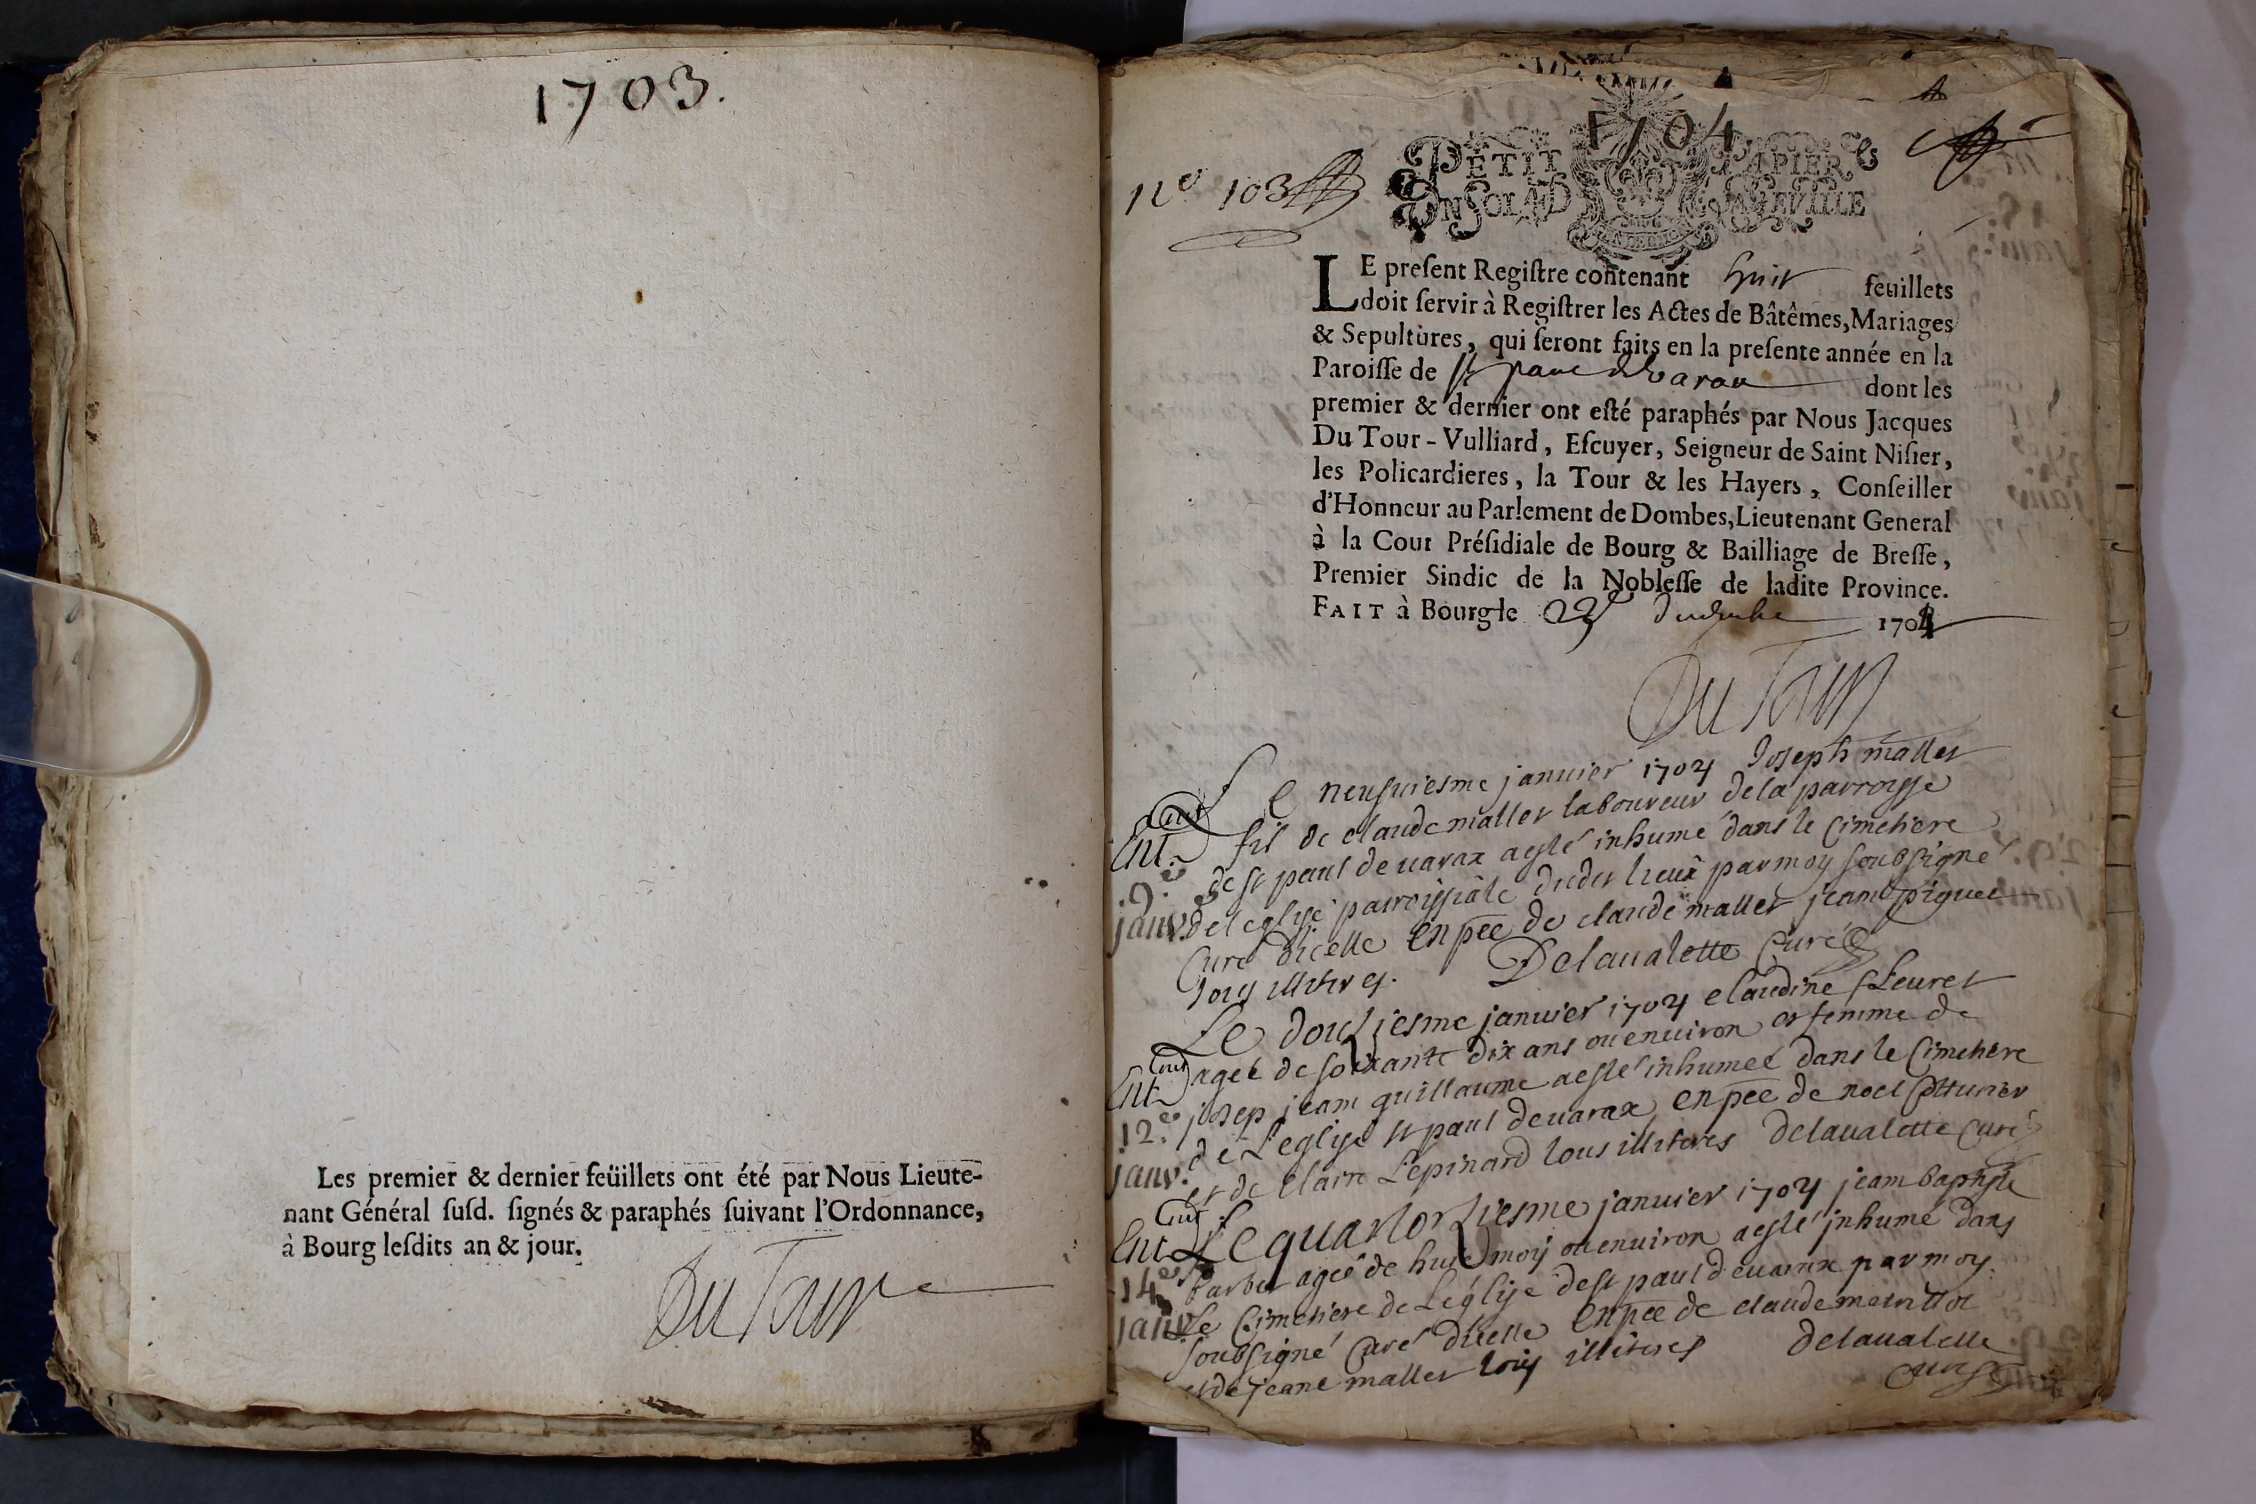 1703.
Les premier & dernier feüillets ont été par Nous Lieute-
nant Général ſuſd. ſignés & paraphés ſuivant l'Ordonnance,
à Bourg leſdits an & jour.
Du Tour
1704
no 103
PETIT PAPIER
UN SOL LA DEMIE FEUILLE
LE preſent Regiſtre contenant huit feuillets
doit ſervir à Regiſtrer les Actes de Bâtêmes, Mariages
& Sepultures, qui ſeront faits en la preſente année en la
Paroiſſe de st paul de varax dont les
premier & dernier ont eſté paraphés par Nous Jacques
Du Tour-Vulliard, Eſcuyer, Seigneur de Saint Niſier,
les Policardieres, la Tour & les Hayers, Conſeiller
d'Honneur au Parlement de Dombes, Lieutenant General
à la Cour Préſidiale de Bourg & Bailliage de Breſſe,
Premier Sindic de la Nobleſſe de ladite Province.
FAIT à Bourg le 1704
Du Tour
Le neufuiesme januier 1704 Joseph mallet
fils de claude mallet laboureur dela parroisse
Ent. de st paul de uarax a esté inhumé dans le Cimetiere
.9.e de leglise parroissiale dudit lieux par moy soubsigné
janv. Curé dicelle en pñce de claude mallet jeam piguet
tous illitires. Delaualette Curé
Le douziesme januier 1704 claudine fleuret
agée de soixante dix ans ou enuiron et femme de
Ent. josep jeam guillaume a esté inhumeé dans le Cimetiere
12.e de L'eglise st paul de uarax en pñce de noel Cotturier
janv. et de claire L'epinard tous illitires delaualette Curé
Le quartorziesme januier 1704 jeam baptiste
Ent. barbet ageé de huit mois ou enuiron a esté inhumé dans
14.e Le Cimetiere de L'eglise de st paul de uarax par moy
janv. soubsigné Curé dicelle en pñce de claude
et de jeane mallet tous illitires delaualette
Curé